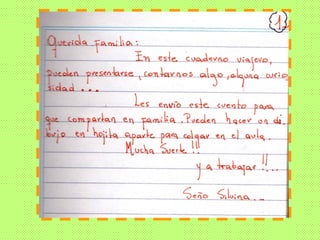 1
Querida Familia:
En este cuaderno viajero,
pueden presentarse, contarnos algo, alguna curio
sidad...
Les envío este cuento para
que compartan en familia. Pueden hacer un di
bujo en hojita aparte para colgar en el aula.
Mucha Suerte!!
y a trabajar!!...
Seño Silvina...